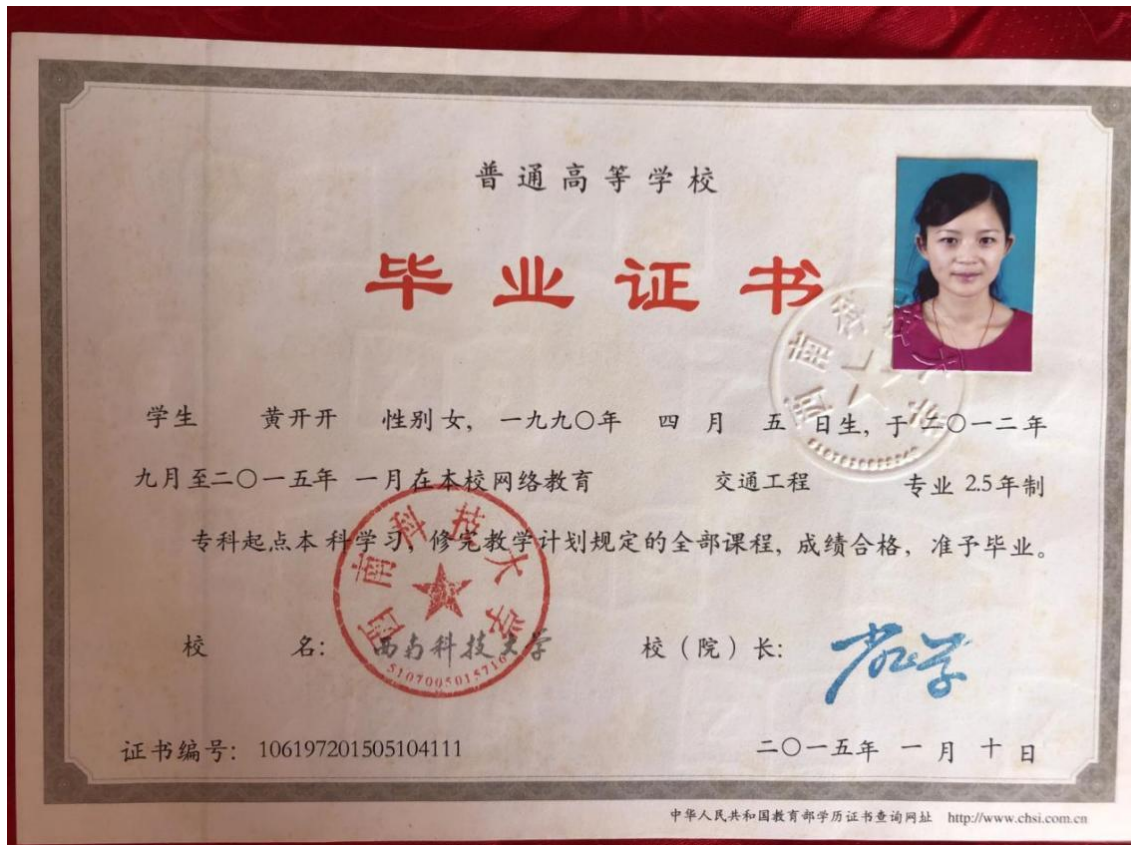 普通高等学校
毕业证书
学生 黄开开 性别 女, 一九九〇年 四 月 五 日生, 于二〇一二年
九月至二〇一五年 一月在本校网络教育 交通工程 专业 2.5年制
专科起点本科学习, 修完教学计划规定的全部课程, 成绩合格, 准予毕业。
校 名: 西南科技大学 校(院)长:
西南科技大学
5107005015716
西南科技大学
证书编号: 106197201505104111 二〇一五年 一 月 十 日
中华人民共和国教育部学历证书查询网址 http://www.chsi.com.cn